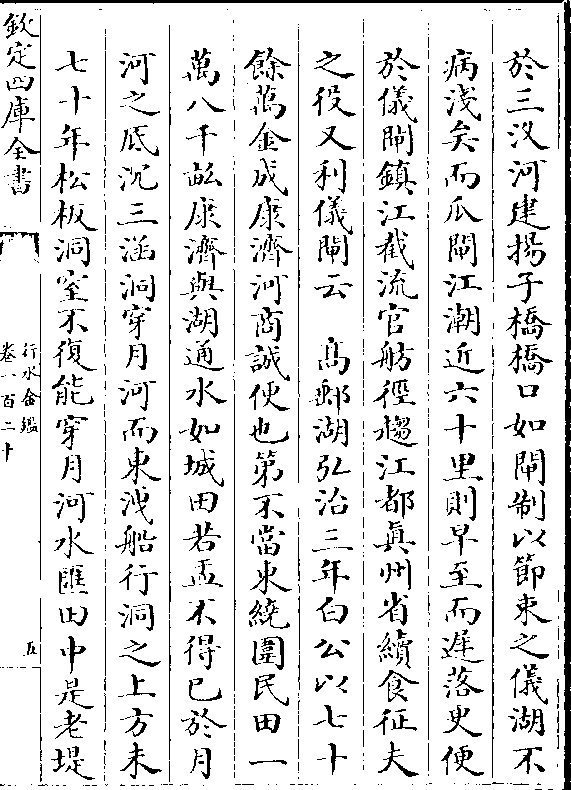 於三汊河建揚子橋橋口如閘制以節束之儀湖不
病淺矣而瓜閘江潮近六十里則早至而遲落更便
於儀閘鎮江截流官舫徑趨江都真州省續食征夫
之役又利儀閘云　高郵湖弘治三年白公以七十
餘萬金成康濟河商誠便也第不當東繞圍民田一
萬八千畝康濟與湖通水如城田若盂不得已於月
河之底沉三涵洞穿月河而東洩船行洞之上方未
七十年松板洞窒不復能穿月河水匯田中是老堤
欽定四庫全書
行水金鑑
卷一百二十
五